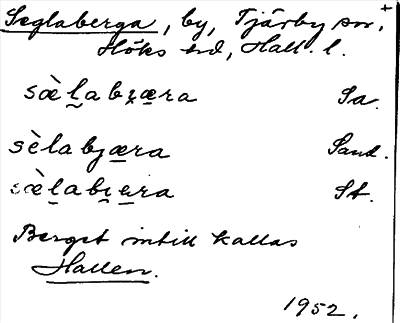 Seglaberga, by, Tjärby sn, +
Höks hd, Hall. l.
sæ̀l̰abi̯æ̲ra Sa.
sèlabjæ̲ra Sand.
sæ̀l̲abi̯æ̲ra St.
Berget intill kallas
Hallen.
1952.